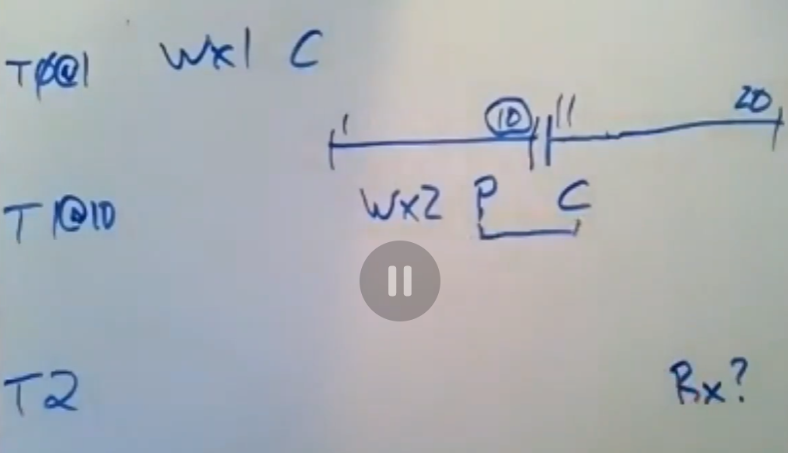 T0@1 Wx1 C
1 10 11 20
T1@10 Wx2 P C
T2 Rx?